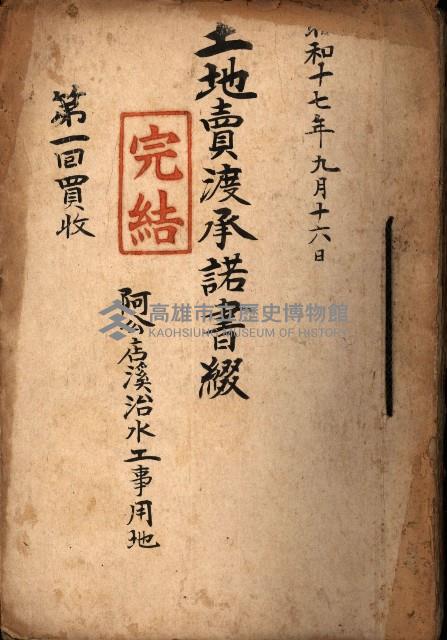 昭和十七年九月十六日
土地賣渡承諾書綴
完結
阿公店溪治水工事用地
第一回買收
高雄市立歷史博物館
KAOHSIUNG MUSEUM OF HISTORY